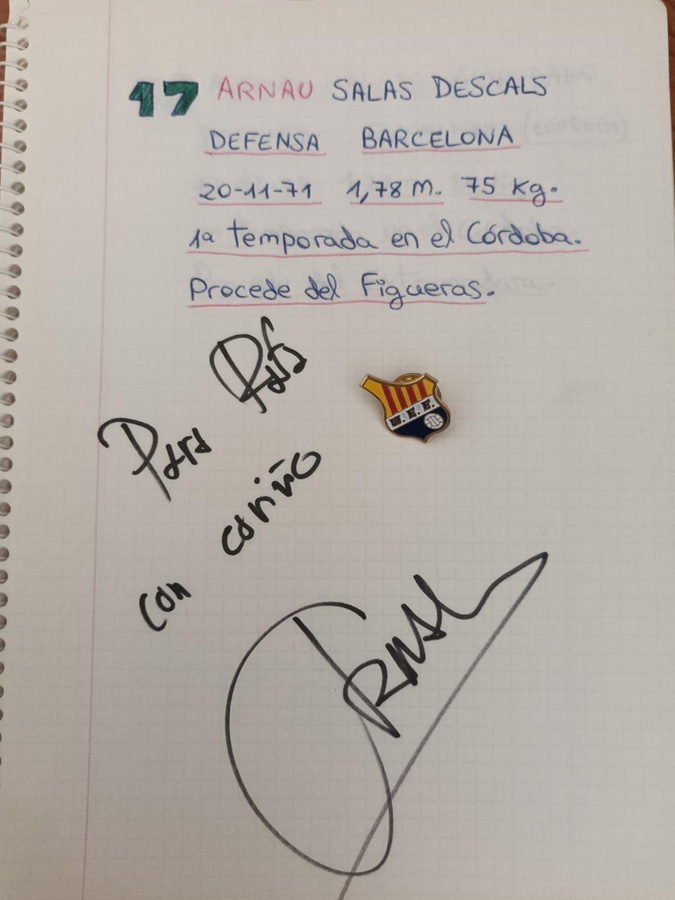 17 ARNAU SALAS DESCALS
DEFENSA BARCELONA
20-11-71 1,78 M. 75 Kg.
1ª temporada en el Córdoba.
Procede del Figueras.
Para Rafa
con cariño